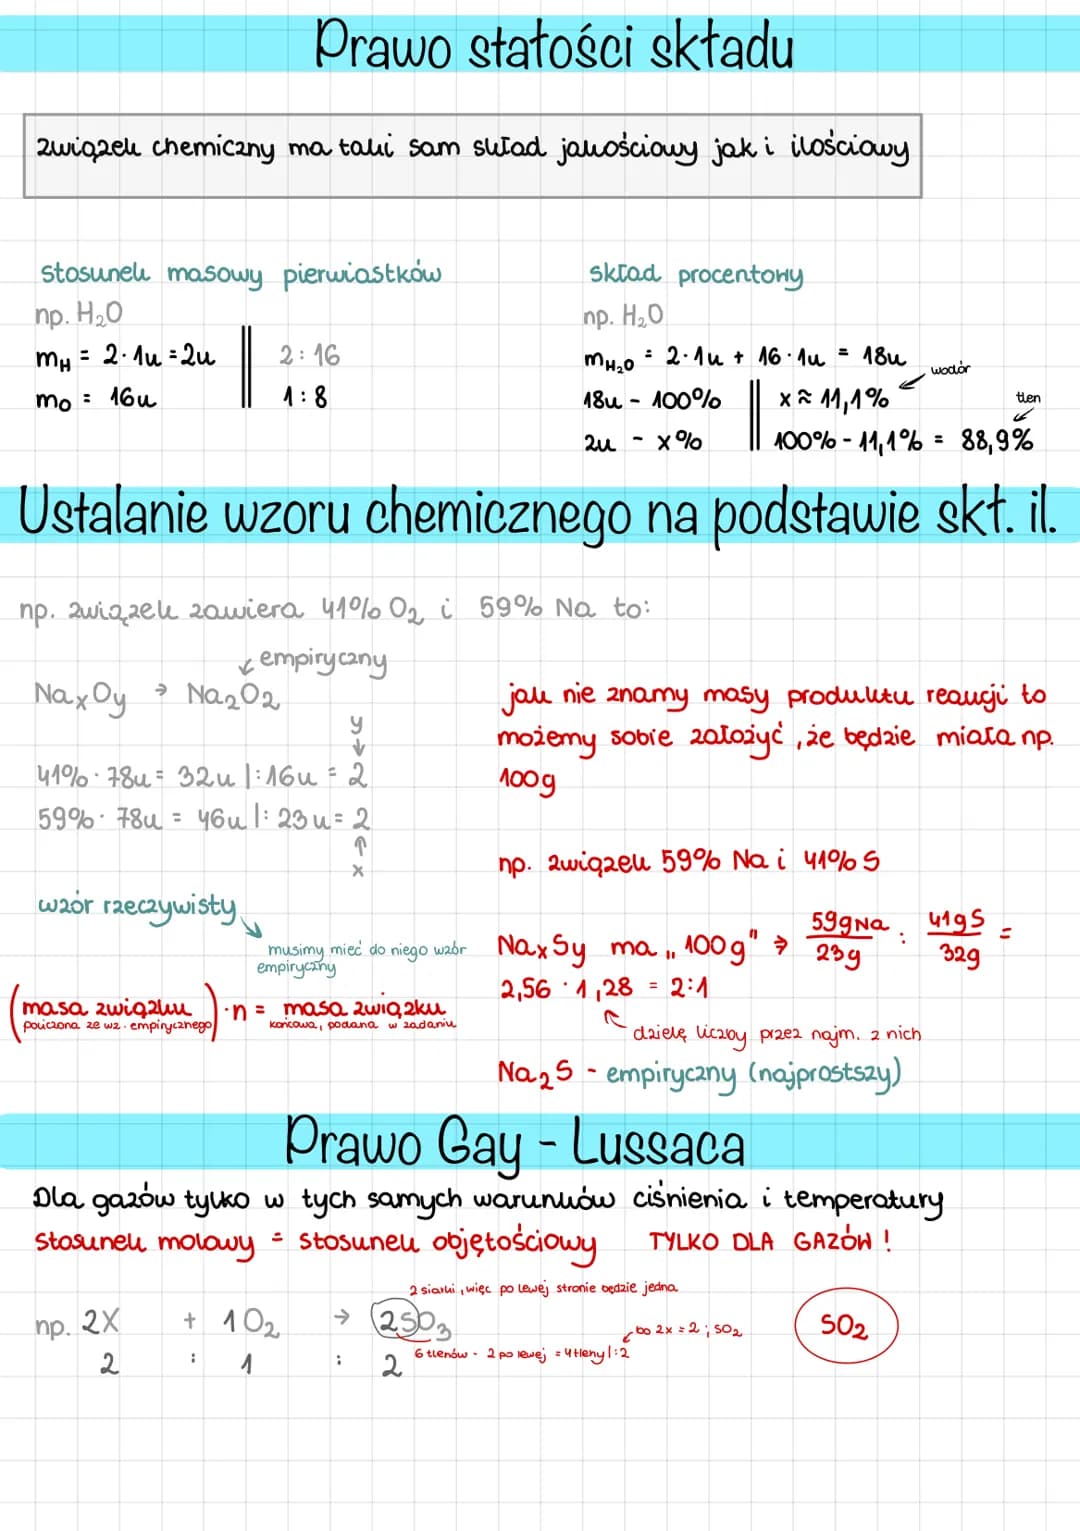 Prawo stałości składu
związek chemiczny ma taki sam skład jakościowy jak i ilościowy
stosunek masowy pierwiastków
np. H₂O
mH = 2·1u = 2u
mO = 16u
2 : 16
1 : 8
skład procentowy
np. H₂O
mH₂O = 2·1u + 16·1u = 18u
18u - 100%
2u - x%
x ≈ 11,1%
wodór
100% - 11,1% = 88,9%
tlen
Ustalanie wzoru chemicznego na podstawie skł. il.
np. związek zawiera 41% O₂ i 59% Na to:
empiryczny
NaxOy → Na₂O₂
y
41% · 78u = 32u |:16u = 2
59% · 78u = 46u |: 23u = 2
x
wzór rzeczywisty
musimy mieć do niego wzór
empiryczny
(masa związku) · n = masa związku
policzona ze wz. empirycznego
końcowa, podana w zadaniu
jak nie znamy masy produktu reakcji to
możemy sobie założyć, że będzie miała np.
100g
np. związek 59% Na i 41% S
NaxSy ma „100g" → 59gNa/23g : 41gS/32g =
2,56 · 1,28 = 2:1
dzielę liczby przez najm. z nich
Na₂S - empiryczny (najprostszy)
Prawo Gay - Lussaca
Dla gazów tylko w tych samych warunków ciśnienia i temperatury
stosunek molowy = stosunek objętościowy TYLKO DLA GAZÓW !
2 siarki, więc po lewej stronie będzie jedna
np. 2X + 1O₂ → 2SO₃
bo 2x = 2 ; SO₂
SO₂
6 tlenów - 2 po lewej = 4 tleny |:2
2 : 1 : 2